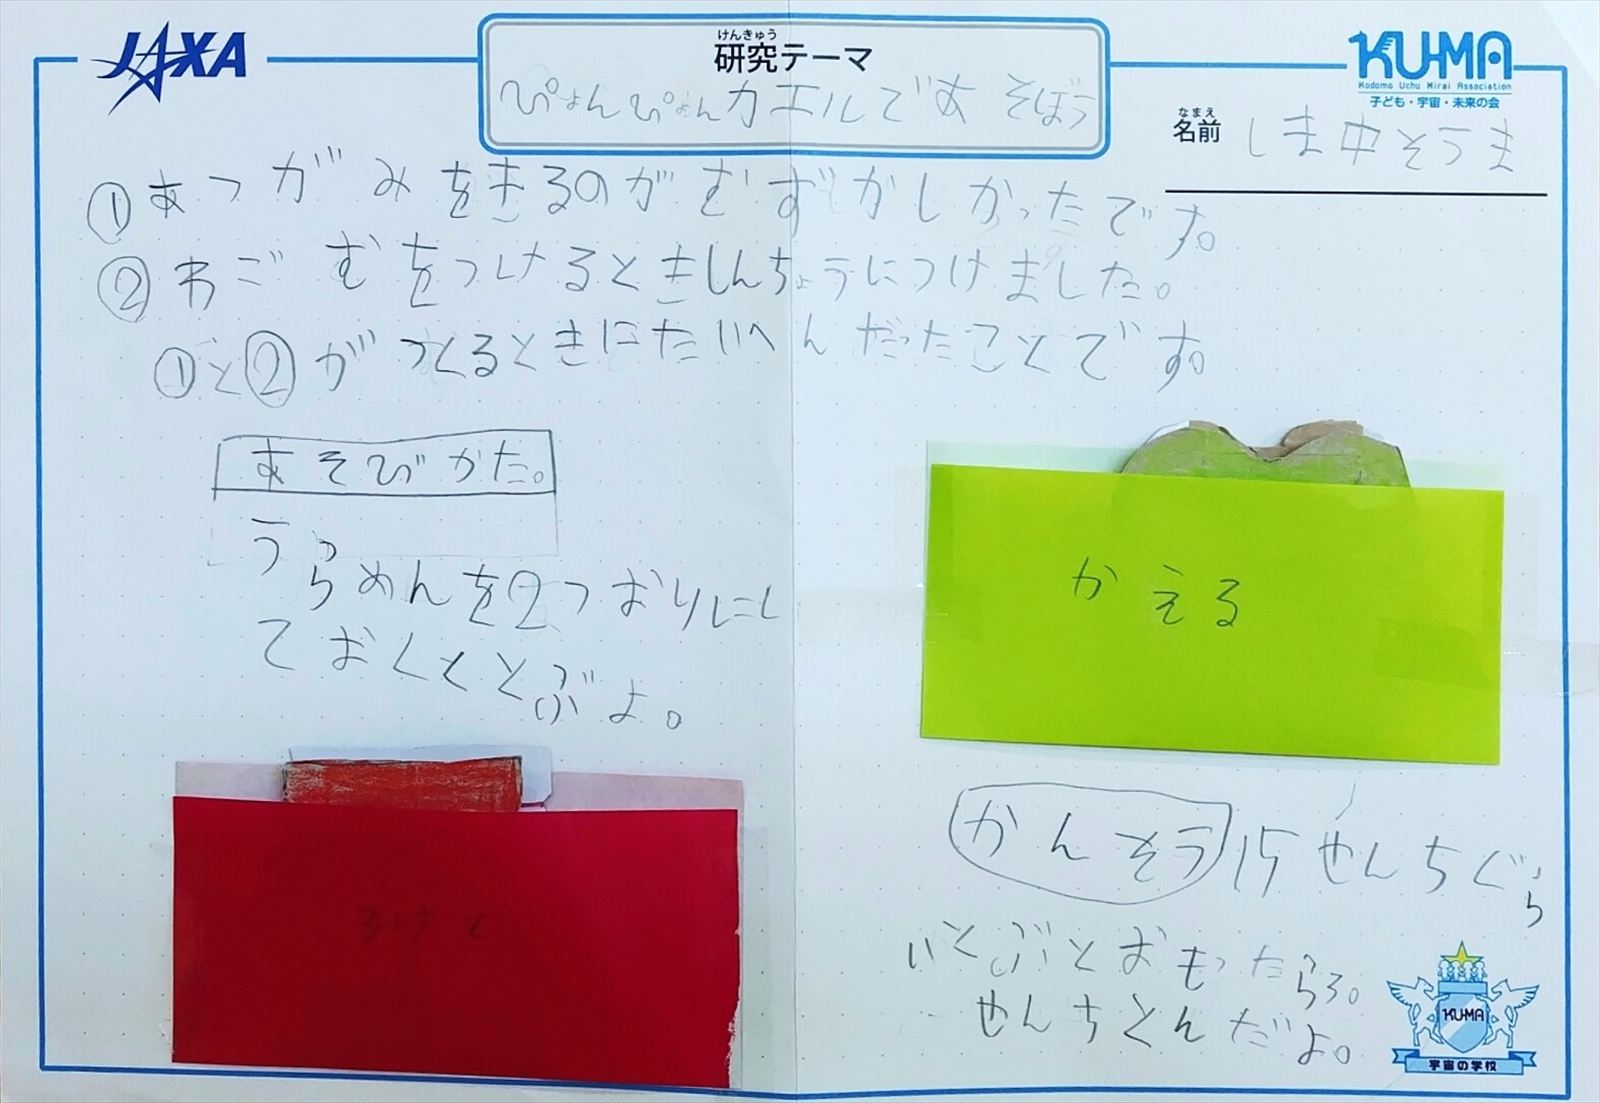 JAXA
けんきゅう
研究テーマ
ぴょんぴょんカエルであそぼう
KU-MA
Kodomo Uchu Mirai Association
子ども・宇宙・未来の会
なまえ
名前 しま中そうま
①あつがみをきるのがむずかしかったです。
②わごむをつけるときしんちょうにつけました。
①と②がつくるときにたいへんだったことです。
あそびかた。
うらめんを2つおりにし
ておくととぶよ。
かえる
ろけと
かんそう 15せんちぐら
いとぶとおもったら3。
せんちとんだよ。
KU-MA
宇宙の学校